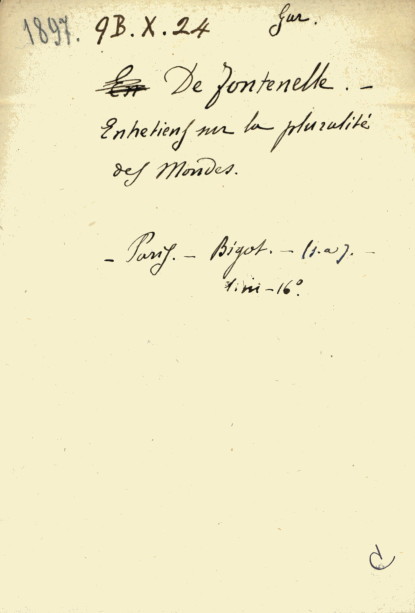 1897. 9B.X.24
De Fontenelle. -
Entretiens sur la pluralité
des Mondes.
- Paris. - Bigot. - (s.a). -
1. in - 16º.